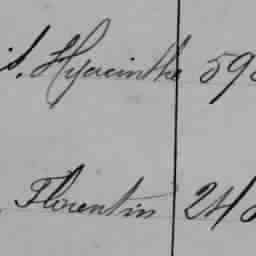 s, Hyacinthe 59
Florentin 24